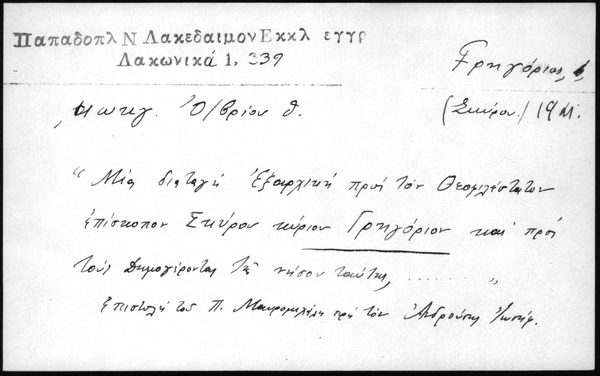 Παπαδοπλ Ν ΛακεδαιμονΕκκλ εγγρ
Λακωνικά 1, 339
Γρηγόριος,
, αωκγ. Ὀ/βρίου θ. (Σκύρου) 19
"Μία διαταγὴ Ἐξαρχικὴ πρὸς τὸν Θεοφιλέστατον
ἐπίσκοπον Σκύρου κύριον Γρηγόριον καὶ πρὸς
τοὺς Δημογέροντας τῆς νήσου ταύτης, ........"
Ἐπιστολὴ τοῦ Π. πρὸς τὸν Ἀνδρούσης Ἰωσήφ.